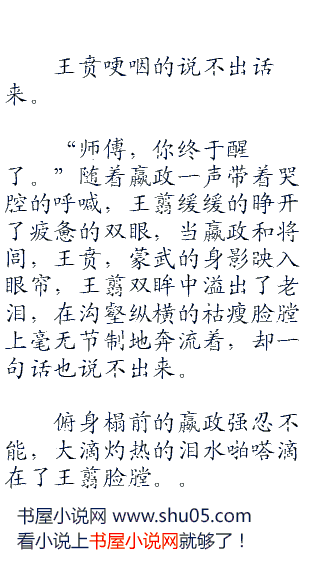 王贲哽咽的说不出话
来。
“师傅，你终于醒
了。”随着嬴政一声带着哭
腔的呼喊，王翦缓缓的睁开
了疲惫的双眼，当嬴政和将
闾，王贲，蒙武的身影映入
眼帘，王翦双眸中溢出了老
泪，在沟壑纵横的祜瘦脸膛
上毫无节制地奔流着，却一
句话也说不出来。
俯身榻前的嬴政强忍不
能，大滴灼热的泪水啪嗒滴
在了王翦脸膛。。
书屋小说网 www.shu05.com
看小说上书屋小说网就够了！